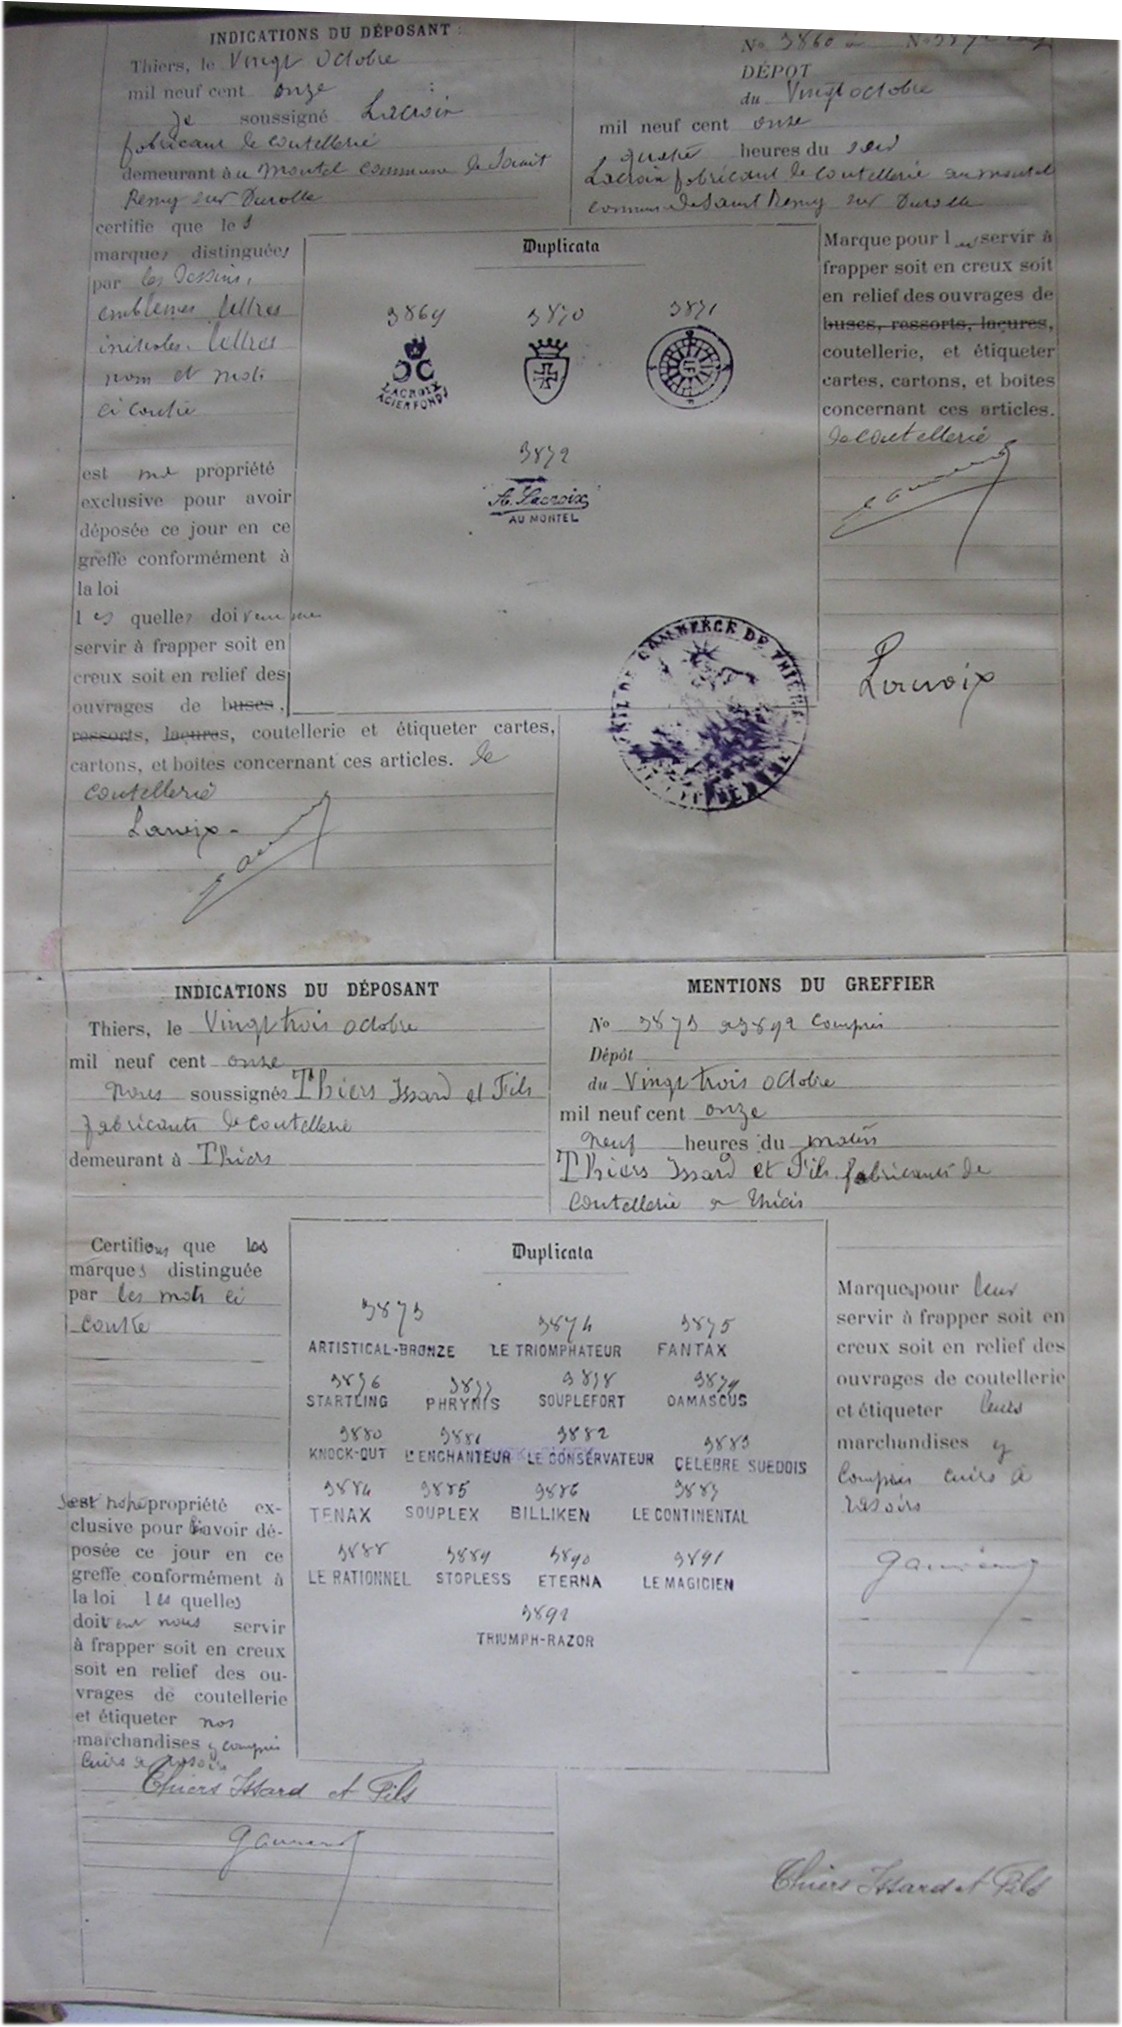 INDICATIONS DU DÉPOSANT :
Thiers, le Vingt octobre
mil neuf cent onze
Je soussigné Lacroix
fabricant de coutellerie
demeurant au Montel commune de Saint
Remy sur Durolle
certifie que les
marques distinguées
par les dessins,
emblèmes lettres
initiales. lettres
nom et mots
ci contre
est ma propriété
exclusive pour avoir
déposée ce jour en ce
greffe conformément à
la loi
les quelles doivent me
servir à frapper soit en
creux soit en relief des
ouvrages de buses,
ressorts, laçures, coutellerie et étiqueter cartes,
cartons, et boites concernant ces articles. de
coutellerie
Lacroix
No 3869 à No 3872
DÉPOT
du Vingt octobre
mil neuf cent onze
quatre heures du soir
Lacroix fabricant de coutellerie au montel
commune de Saint Remy sur Durolle
Duplicata
3869 3870 3871
LACROIX
ACIER FONDU
3872
A. Lacroix
AU MONTEL
Marque pour les servir à
frapper soit en creux soit
en relief des ouvrages de
buses, ressorts, laçures,
coutellerie, et étiqueter
cartes, cartons, et boites
concernant ces articles.
de coutellerie
COMMERCE DE THIERS
Lacroix
INDICATIONS DU DÉPOSANT
Thiers, le Vingt trois octobre
mil neuf cent onze
Nous soussignés Thiers Issard et Fils
fabricants de coutellerie
demeurant à Thiers
Certifions que les
marques distinguée
par les mots ci
contre
sont notre propriété ex-
clusive pour l'avoir dé-
posée ce jour en ce
greffe conformément à
la loi les quelles
doivent nous servir
à frapper soit en creux
soit en relief des ou-
vrages de coutellerie
et étiqueter nos
marchandises y compris
cuirs à rasoirs
Thiers Issard et Fils
MENTIONS DU GREFFIER
No 3873 a 3892 compris
Dépôt
du Vingt trois octobre
mil neuf cent onze
neuf heures du matin
Thiers Issard et Fils fabricants de
coutellerie a Thiers
Duplicata
3873 3874 3875
ARTISTICAL-BRONZE LE TRIOMPHATEUR FANTAX
3876 3877 3878 3879
STARTLING PHRYNIS SOUPLEFORT DAMASCUS
3880 3881 3882 3883
KNOCK-OUT L'ENCHANTEUR LE CONSERVATEUR CELEBRE SUEDOIS
3884 3885 3886 3887
TENAX SOUPLEX BILLIKEN LE CONTINENTAL
3888 3889 3890 3891
LE RATIONNEL STOPLESS ETERNA LE MAGICIEN
3892
TRIUMPH-RAZOR
Marques pour leur
servir à frapper soit en
creux soit en relief des
ouvrages de coutellerie
et étiqueter leurs
marchandises y
compris cuirs à
rasoirs
Thiers Issard et Fils